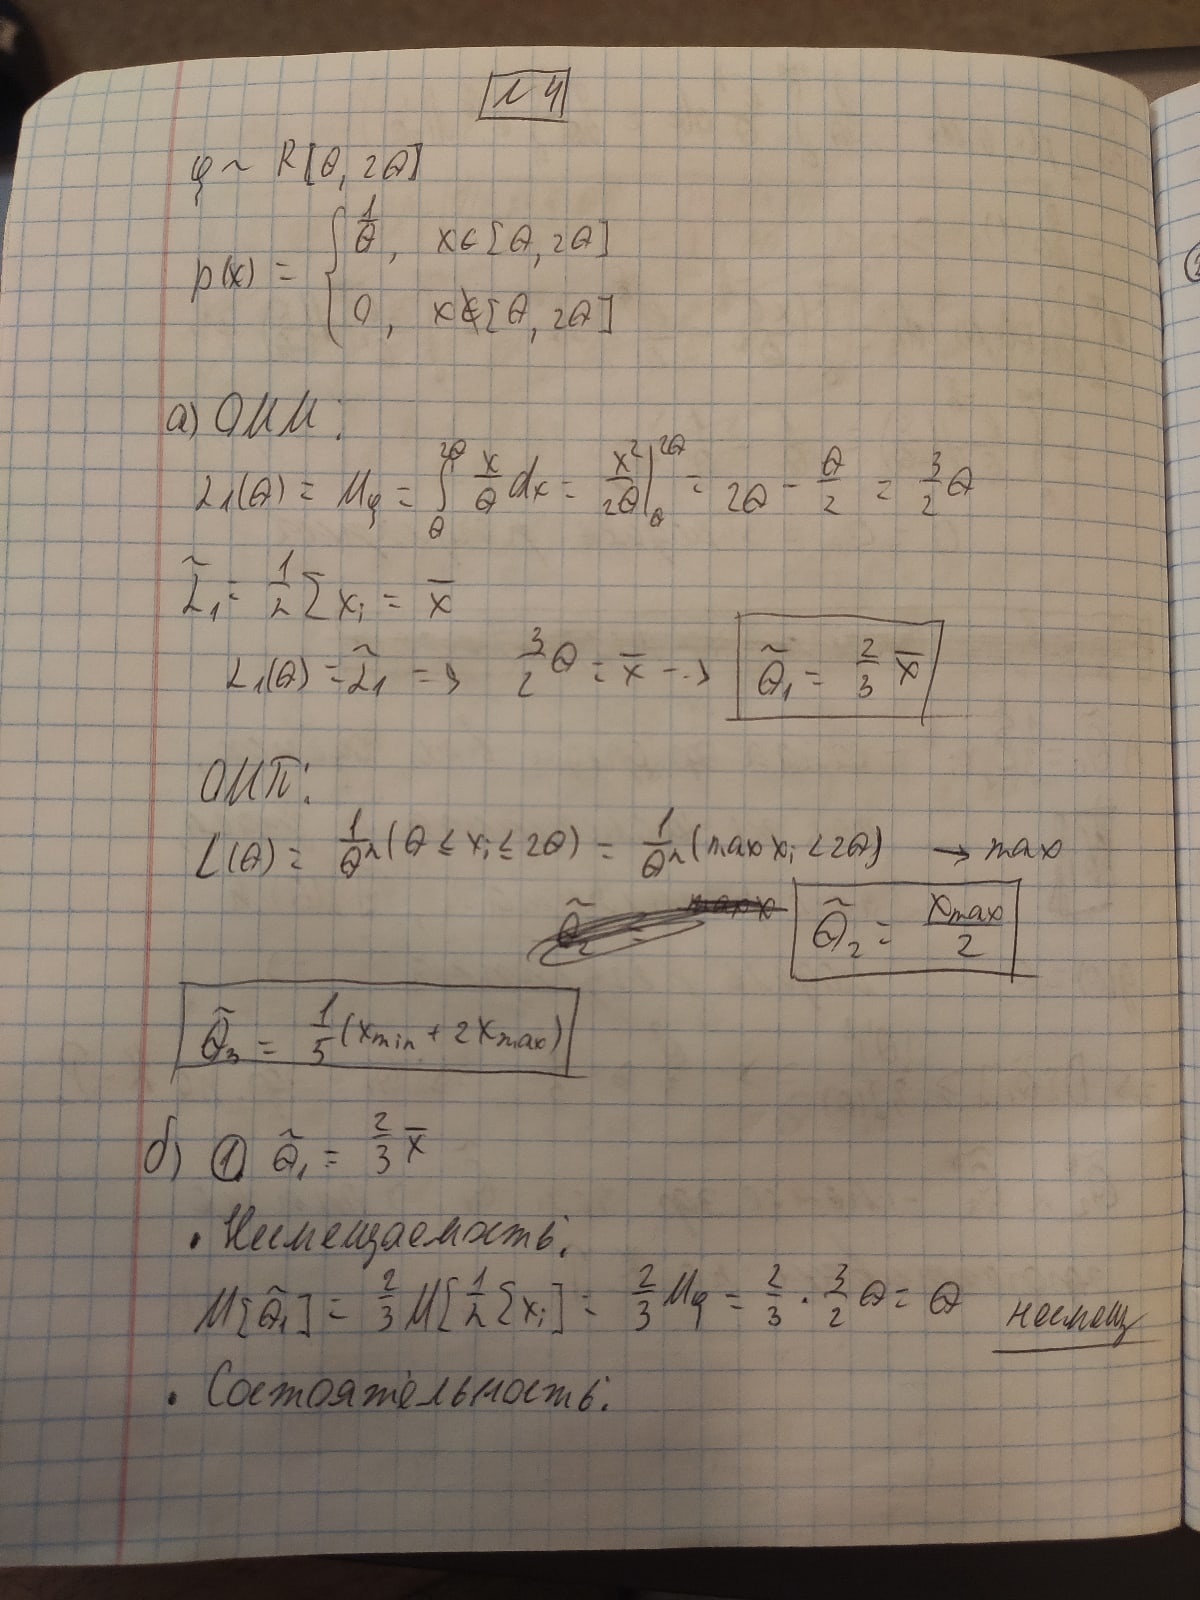 № 4
ξ ~ R[θ, 2θ]
p(x) = { 1/θ, x∈[θ, 2θ]
0, x∉[θ, 2θ]
а) ОММ:
α₁(θ) = Mξ = ∫_θ^{2θ} x/θ dx = x²/2θ |_θ^{2θ} = 2θ - θ/2 = 3/2 θ
α̃₁ = 1/n Σ xᵢ = x̄
α₁(θ) = α̃₁ => 3/2 θ = x̄ --> θ̃₁ = 2/3 x̄
ОМП:
L(θ) = 1/θⁿ (θ ≤ xᵢ ≤ 2θ) = 1/θⁿ (max xᵢ < 2θ) → max
θ̃₂ = xmax/2
θ̃₃ = 1/5 (xmin + 2xmax)
б) ① θ̃₁ = 2/3 x̄
• Несмещаемость:
M[θ̃₁] = 2/3 M[1/n Σxᵢ] = 2/3 Mξ = 2/3 · 3/2 θ = θ несмещ
• Состоятельность: